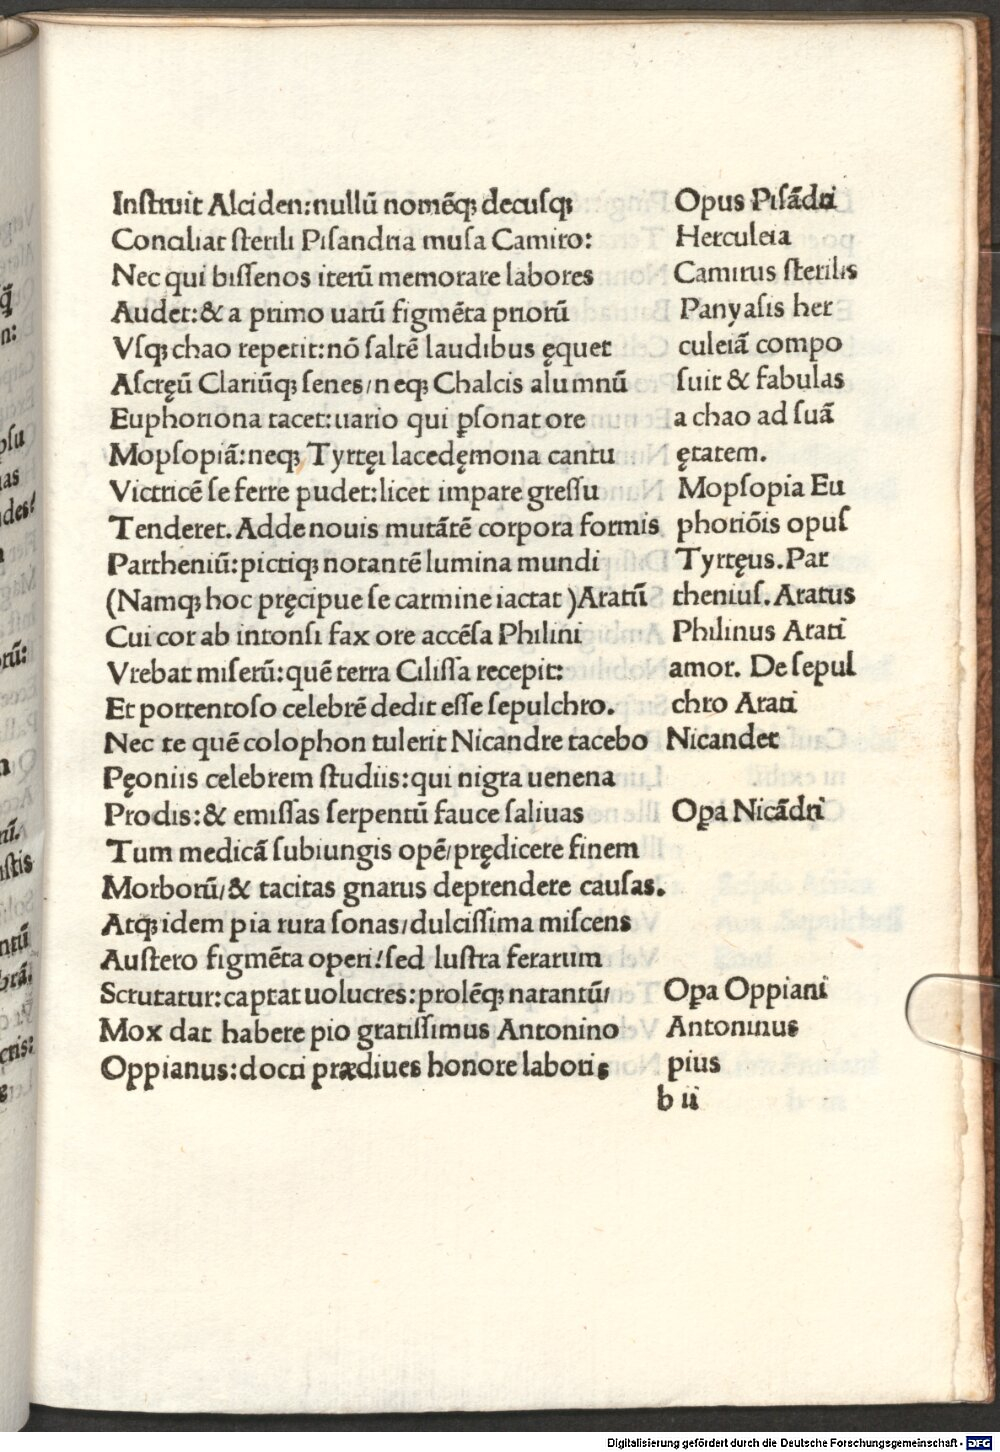 Instruit Alciden:nullū nomēqꝫ decusqꝫ
Conciliat sterili Pisandria musa Camiro:
Nec qui bissenos iterū memorare labores
Audet:& a primo uatū figmēta priorū
Vsqꝫ chao repetit:nō saltē laudibus ęquet
Ascręū Clariūqꝫ senes/neqꝫ Chalcis alumnū
Euphoriona tacet:uario qui ꝑsonat ore
Mopsopiā:neqꝫ Tyrtęi lacedęmona cantu
Victricē se ferre pudet:licet impare gressu
Tenderet. Adde nouis mutātē corpora formis
Partheniū:pictiqꝫ notantē lumina mundi
(Namqꝫ hoc pręcipue se carmine iactat )Aratū
Cui cor ab intonsi fax ore accēsa Philini
Vrebat miserū:quē terra Cilissa recepit:
Et portentoso celebrē dedit esse sepulchro.
Nec te quē colophon tulerit Nicandre tacebo
Pęoniis celebrem studiis:qui nigra uenena
Prodis:& emissas serpentū fauce saliuas
Tum medicā subiungis opē/prędicere finem
Morborū/& tacitas gnarus deprendere causas.
Atqꝫ idem pia rura sonas/dulcissima miscens
Austero figmēta operi!sed lustra ferarum
Scrutatur:captat uolucres:prolēqꝫ natantū/
Mox dat habere pio gratissimus Antonino
Oppianus:docti prædiues honore laboris
Opus Pisādri
Herculeia
Camirus sterilis
Panyasis her
culeiā compo
suit & fabulas
a chao ad suā
ętatem.
Mopsopia Eu
phoriōis opus
Tyrtęus. Par
thenius. Aratus
Philinus Arati
amor. De sepul
chro Arati
Nicander
Oꝑa Nicādri
Oꝑa Oppiani
Antoninus
pius
b ii
Digitalisierung gefördert durch die Deutsche Forschungsgemeinschaft - DFG